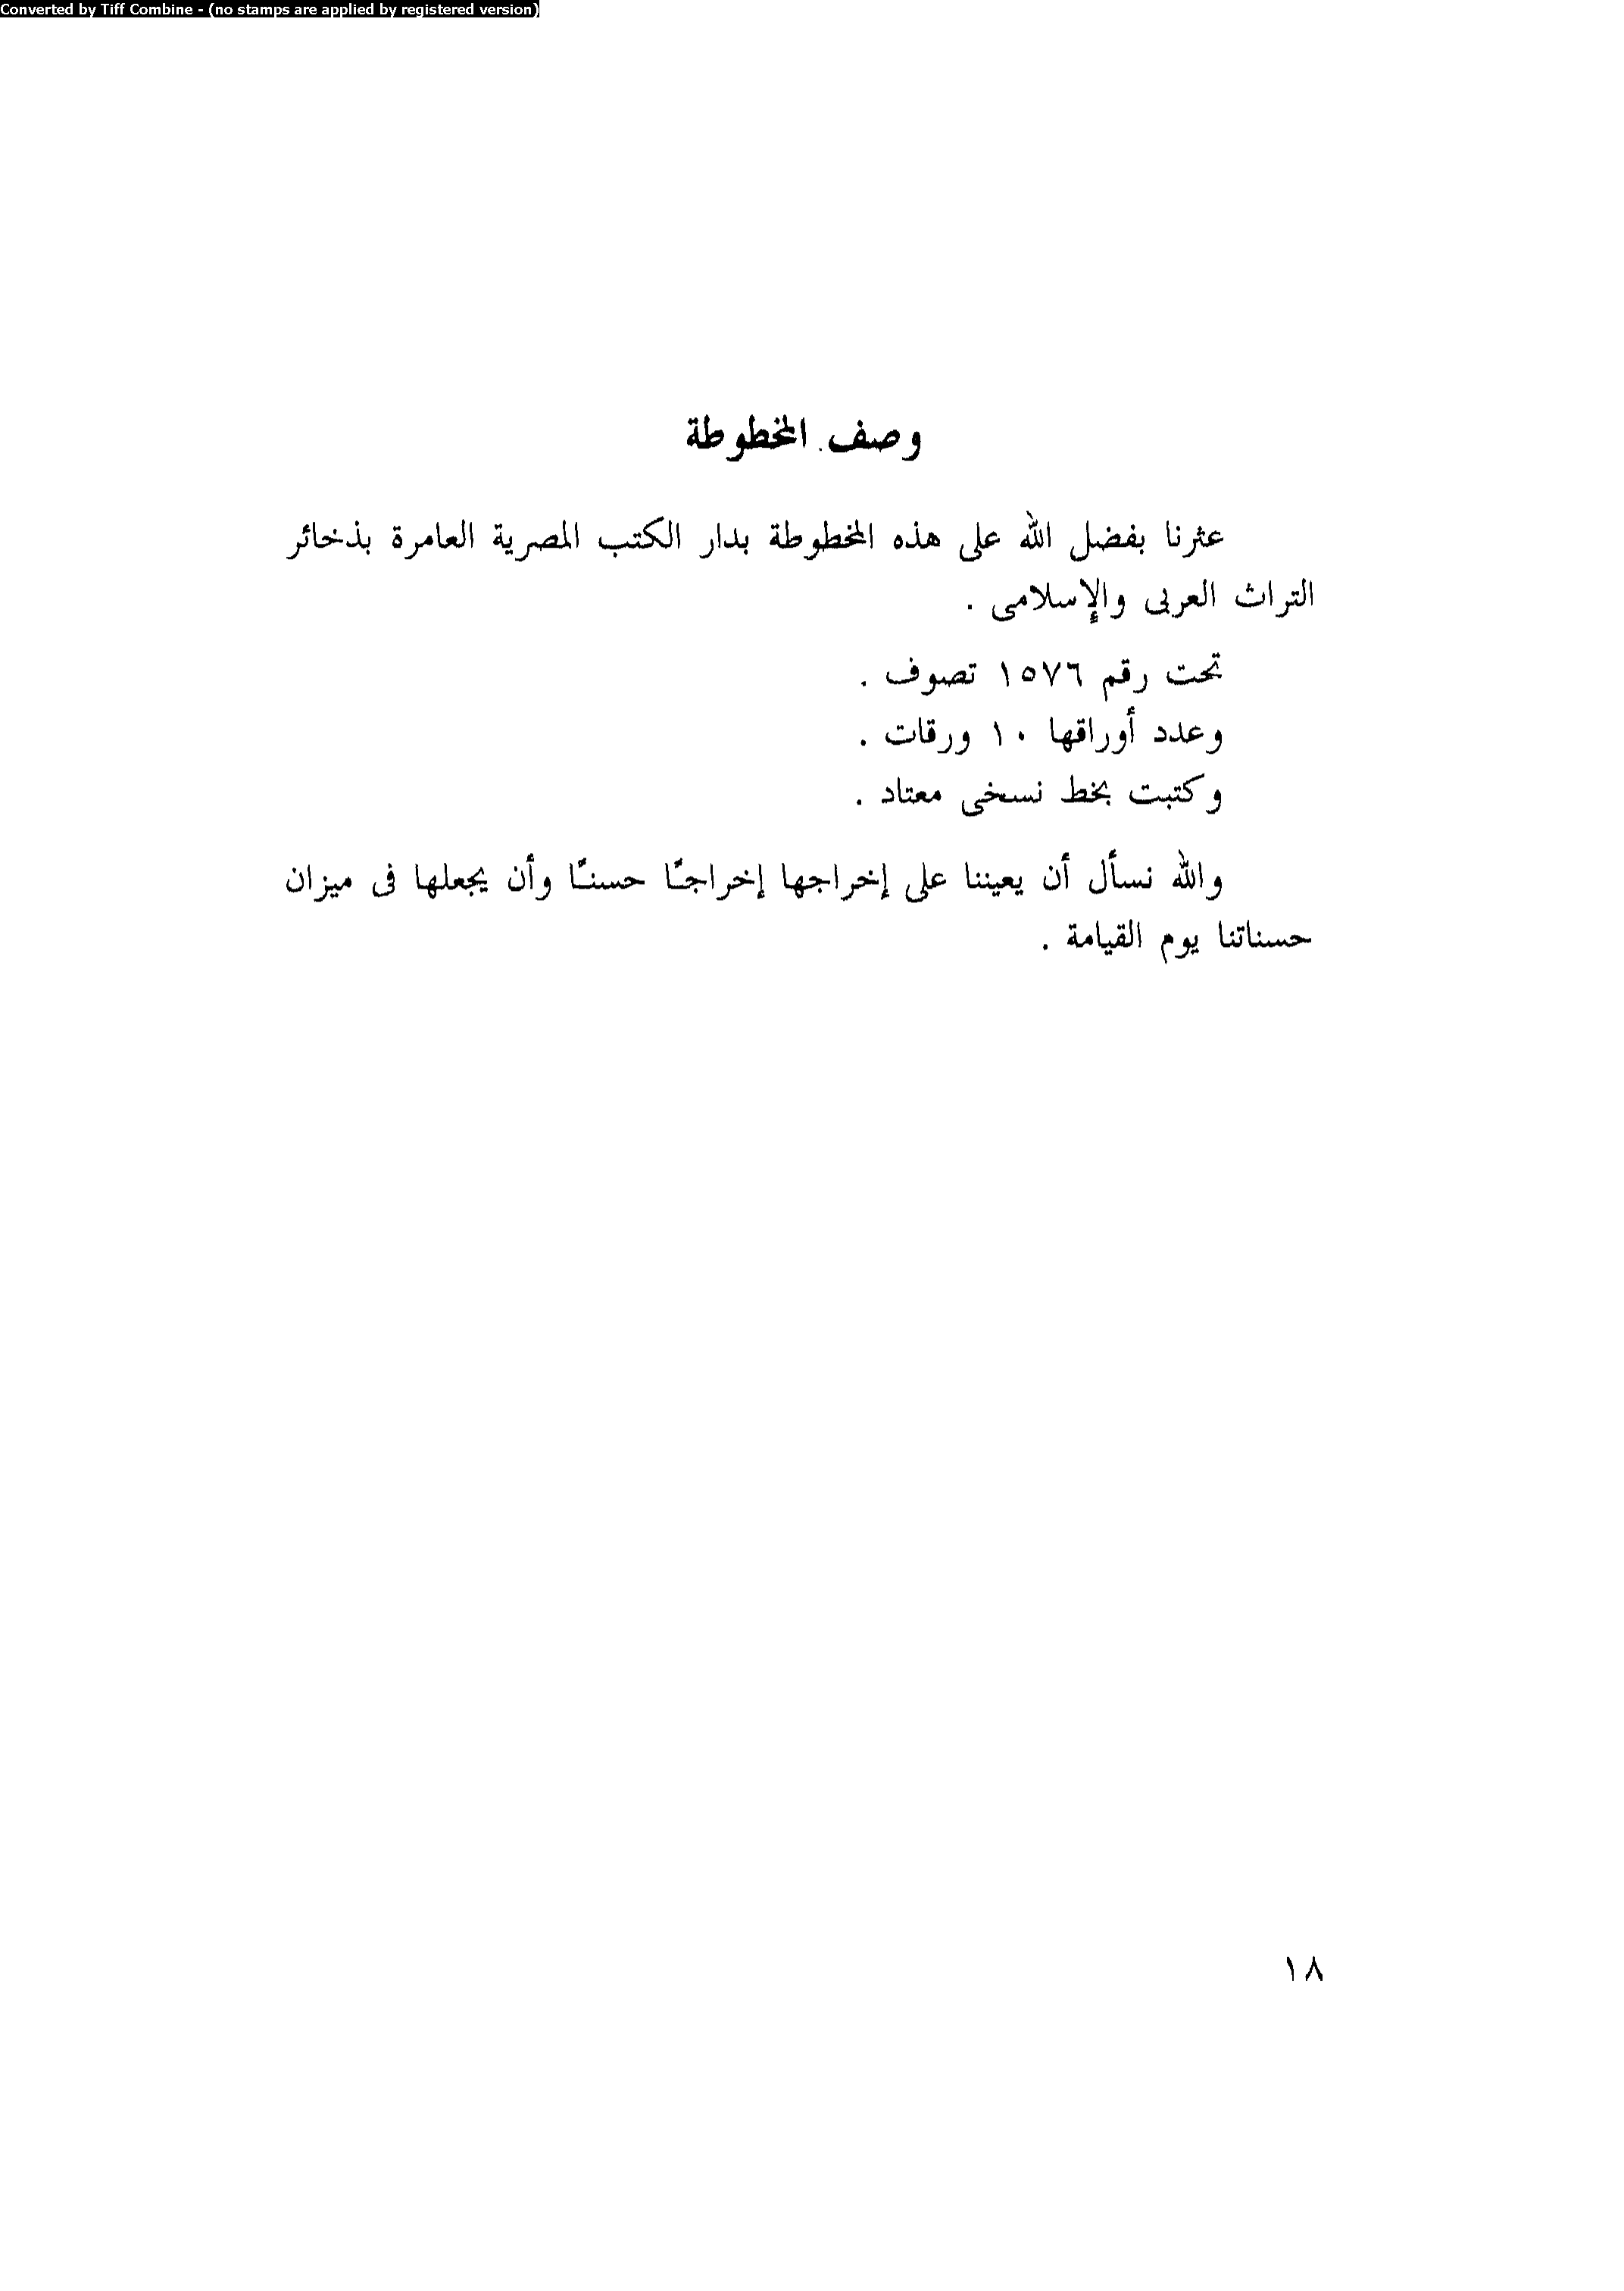 Converted by Tiff Combine - (no stamps are applied by registered version)
وصف المخطوطة
عثرنا بفضل الله على هذه المخطوطة بدار الكتب المصرية العامرة بذخائر
التراث العربى والإسلامى .
تحت رقم ١٥٧٦ تصوف .
وعدد أوراقها ١٠ ورقات .
وكتبت بخط نسخى معتاد .
والله نسأل أن يعيننا على إخراجها إخراجًا حسنًا وأن يجعلها فى ميزان
حسناتنا يوم القيامة .
١٨